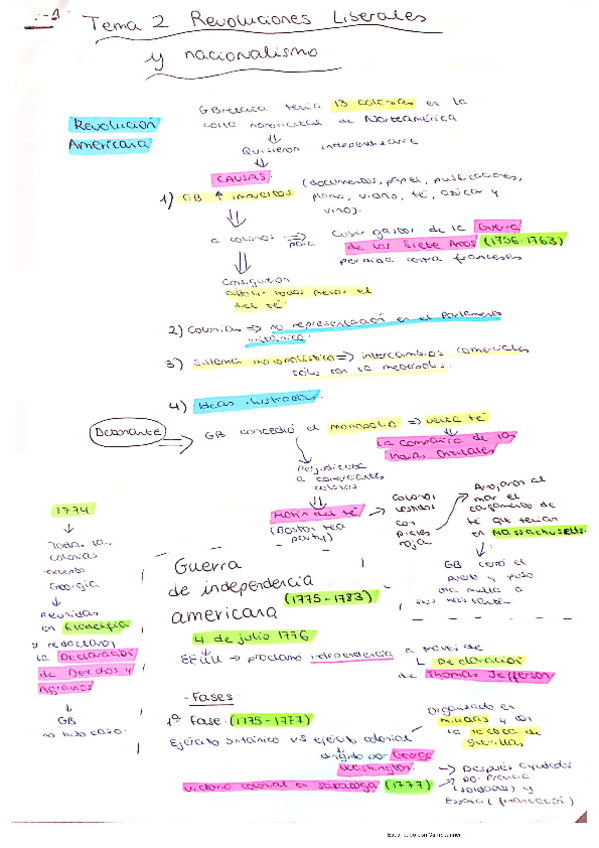 Tema 2 Revoluciones Liberales
y nacionalismo
Revolución
Americana
GBretaña tenía 13 colonias en la
costa noroccidental de Norteamérica
Quisieron independizarse
CAUSAS
1) GB ↑ impuestos
(documentos, papel, publicaciones,
plomo, vidrio, té, azúcar y
vino).
a colonos ⇒ para
cubrir gastos de la Guerra
de los Siete Años (1756-1763)
perdida contra franceses
Consiguieron
abolir todos menos el
del té
2) Colonias ⇒ no representación en el Parlamento
británico.
3) Sistema monopolístico ⇒ intercambios comerciales
solo con la metrópolis.
4) Ideas ilustradas.
Detonante
GB concedió el monopolio ⇒ venta té
la Compañía de las
Indias Orientales
Perjudicase
a comerciantes
colonos
Motín del té
(Boston tea
party)
Colonos
vestidos
con
pieles
roja
Arrojaron al
mar el
cargamento de
té que tenían
en Massachusetts.
GB cerró el
puerto y puso
una multa a
1774
Todas las
colonias
excepto
Georgia
Reunidas
en Filadelfia
y redactaron
la Declaración
de Derechos y
Agravios
GB
no hizo caso.
Guerra
de independencia
americana (1775-1783)
4 de julio 1776
EEUU → proclamó independencia a través de
L Declaración
de Thomas Jefferson
- Fases -
1ª Fase (1775-1777)
Ejército británico vs ejército colonial
dirigido por George
Washington.
Organizado en
milicias y con
la táctica de
guerrillas
victoria colonial en Saratoga (1777)
→ Después ayudados
por Francia
(soldados) y
España (financiación)
Escaneado con CamScanner